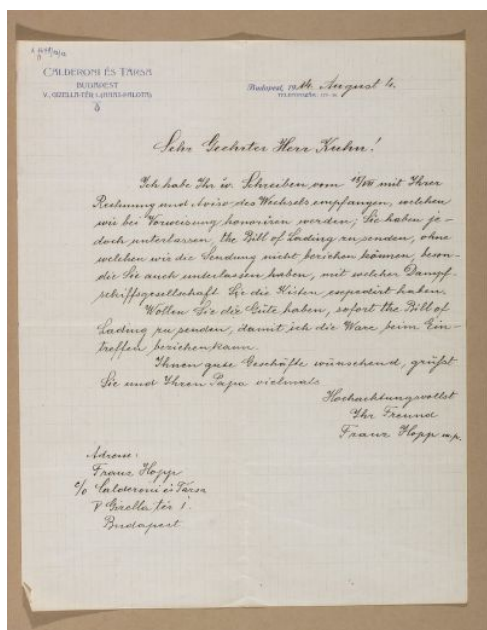 CALDERONI ÉS TÁRSA
BUDAPEST
V., GIZELLA-TÉR 1. (HAAS-PALOTA)
Budapest, 1914 August 4.
Sehr Geehrter Herr Kuhn!
Ich habe Ihr w. Schreiben vom 15/VII mit Ihrer
Rechnung und Aviso des Wechsels empfangen, welchen
wir bei Vorweisung honoriren werden; Sie haben je-
doch unterlassen, the Bill of Lading zu senden, ohne
welchen wir die Sendung nicht beziehen können, beson-
die Sie auch unterlassen haben, mit welcher Dampf-
schiffsgesellschaft Sie die Kisten expedirt haben.
Wollen Sie die Güte haben, sofort the Bill of
Lading zu senden, damit ich die Ware beim Ein-
treffen beziehen kann.
Ihnen gute Geschäfte wünschend, grüßt
Sie und Ihren Papa vielmals
Hochachtungsvollst
Ihr Freund
Franz Hopp m.p.
Adresse:
Franz Hopp
c/o Calderoni és Társa
V Gizella tér 1.
Budapest